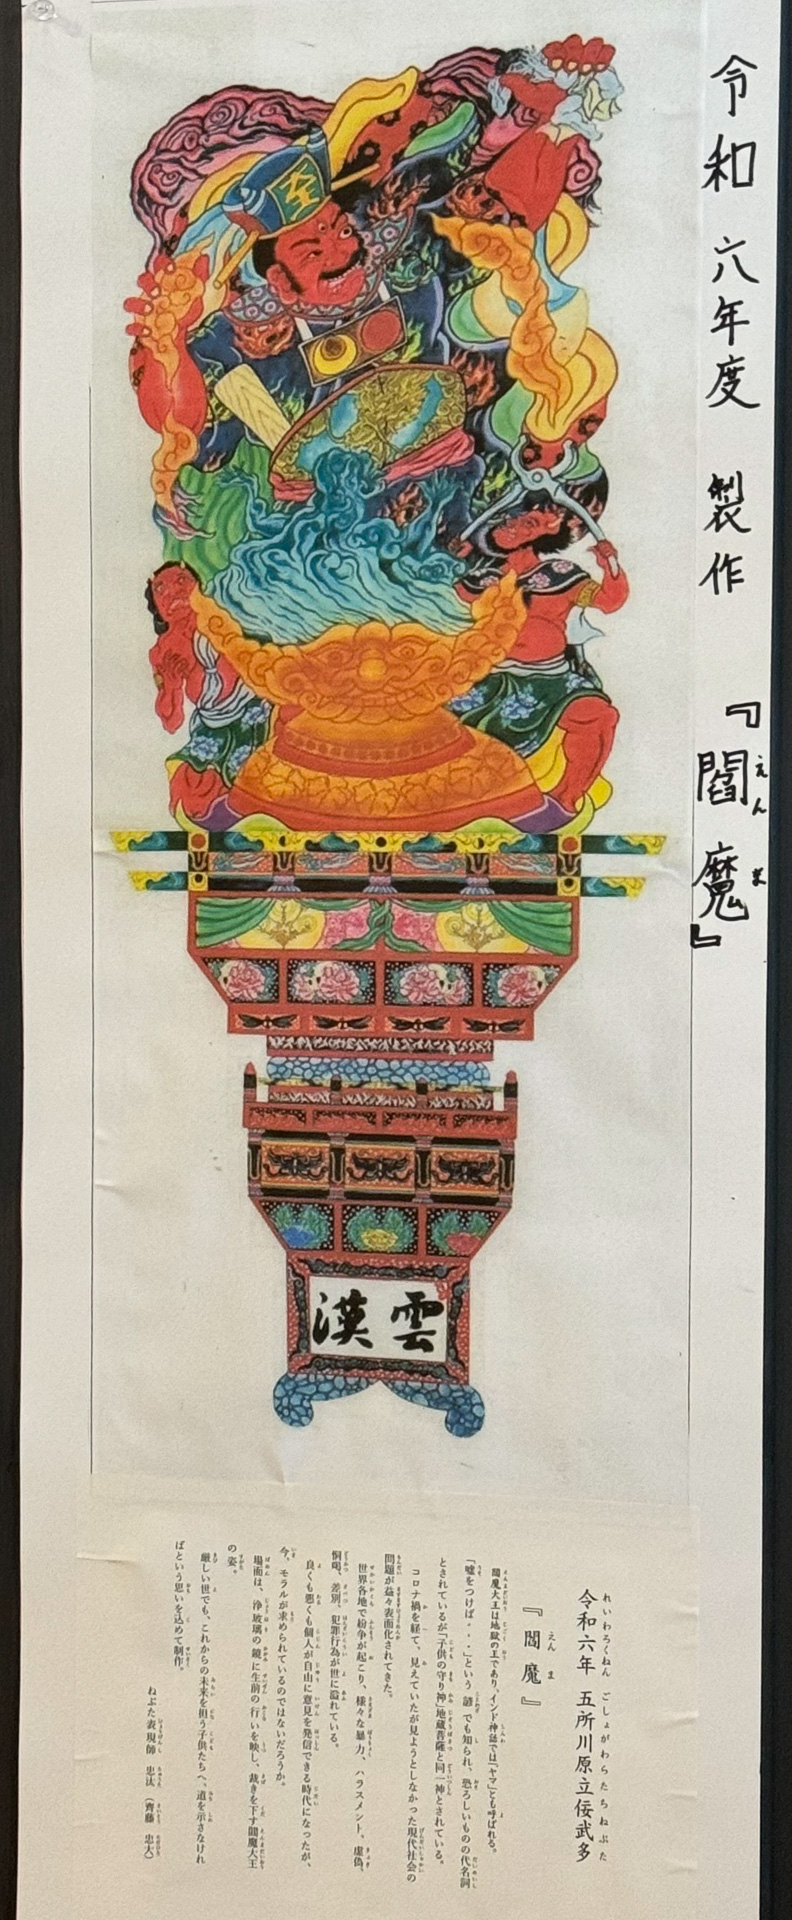 令和六年度 製作 『閻魔』
えんま
雲漢
れいわろくねん ごしょがわらたちねぷた
令和六年 五所川原立佞武多
えんま
『閻魔』
閻魔大王は地獄の王であり、インド神話では「ヤマ」とも呼ばれる。
「嘘をつけば・・・」という諺でも知られ、恐ろしいものの代名詞
とされているが「子供の守り神」地蔵菩薩と同一神とされている。
コロナ禍を経て、見えていたが見ようとしなかった現代社会の
問題が益々表面化されてきた。
世界各地で紛争が起こり、様々な暴力、ハラスメント、虚偽、
恫喝、差別、犯罪行為が世に溢れている。
良くも悪くも個人が自由に意見を発信できる時代になったが、
今、モラルが求められているのではないだろうか。
場面は、浄玻璃の鏡に生前の行いを映し、裁きを下す閻魔大王
の姿。
厳しい世でも、これからの未来を担う子供たちへ、道を示さなけれ
ばという思いを込めて制作。
ねぷた表現師 忠汰(齊藤 忠大)